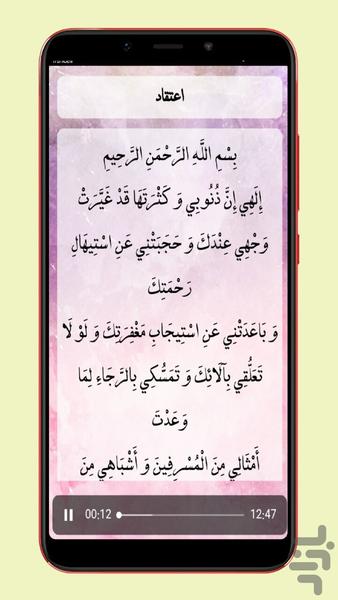 اعتقاد
بِسْمِ اللَّهِ الرَّحْمَنِ الرَّحِيمِ
إِلَهِي إِنَّ ذُنُوبِي وَ كَثْرَتَهَا قَدْ غَيَّرَتْ
وَجْهِي عِنْدَكَ وَ حَجَبَتْنِي عَنِ اسْتِيهَالِ
رَحْمَتِكَ
وَ بَاعَدَتْنِي عَنِ اسْتِيجَابِ مَغْفِرَتِكَ وَ لَوْ لَا
تَعَلُّقِي بِآلَائِكَ وَ تَمَسُّكِي بِالرَّجَاءِ لِمَا
وَعَدْتَ
أَمْثَالِي مِنَ الْمُسْرِفِينَ وَ أَشْبَاهِي مِنَ
00:12 12:47